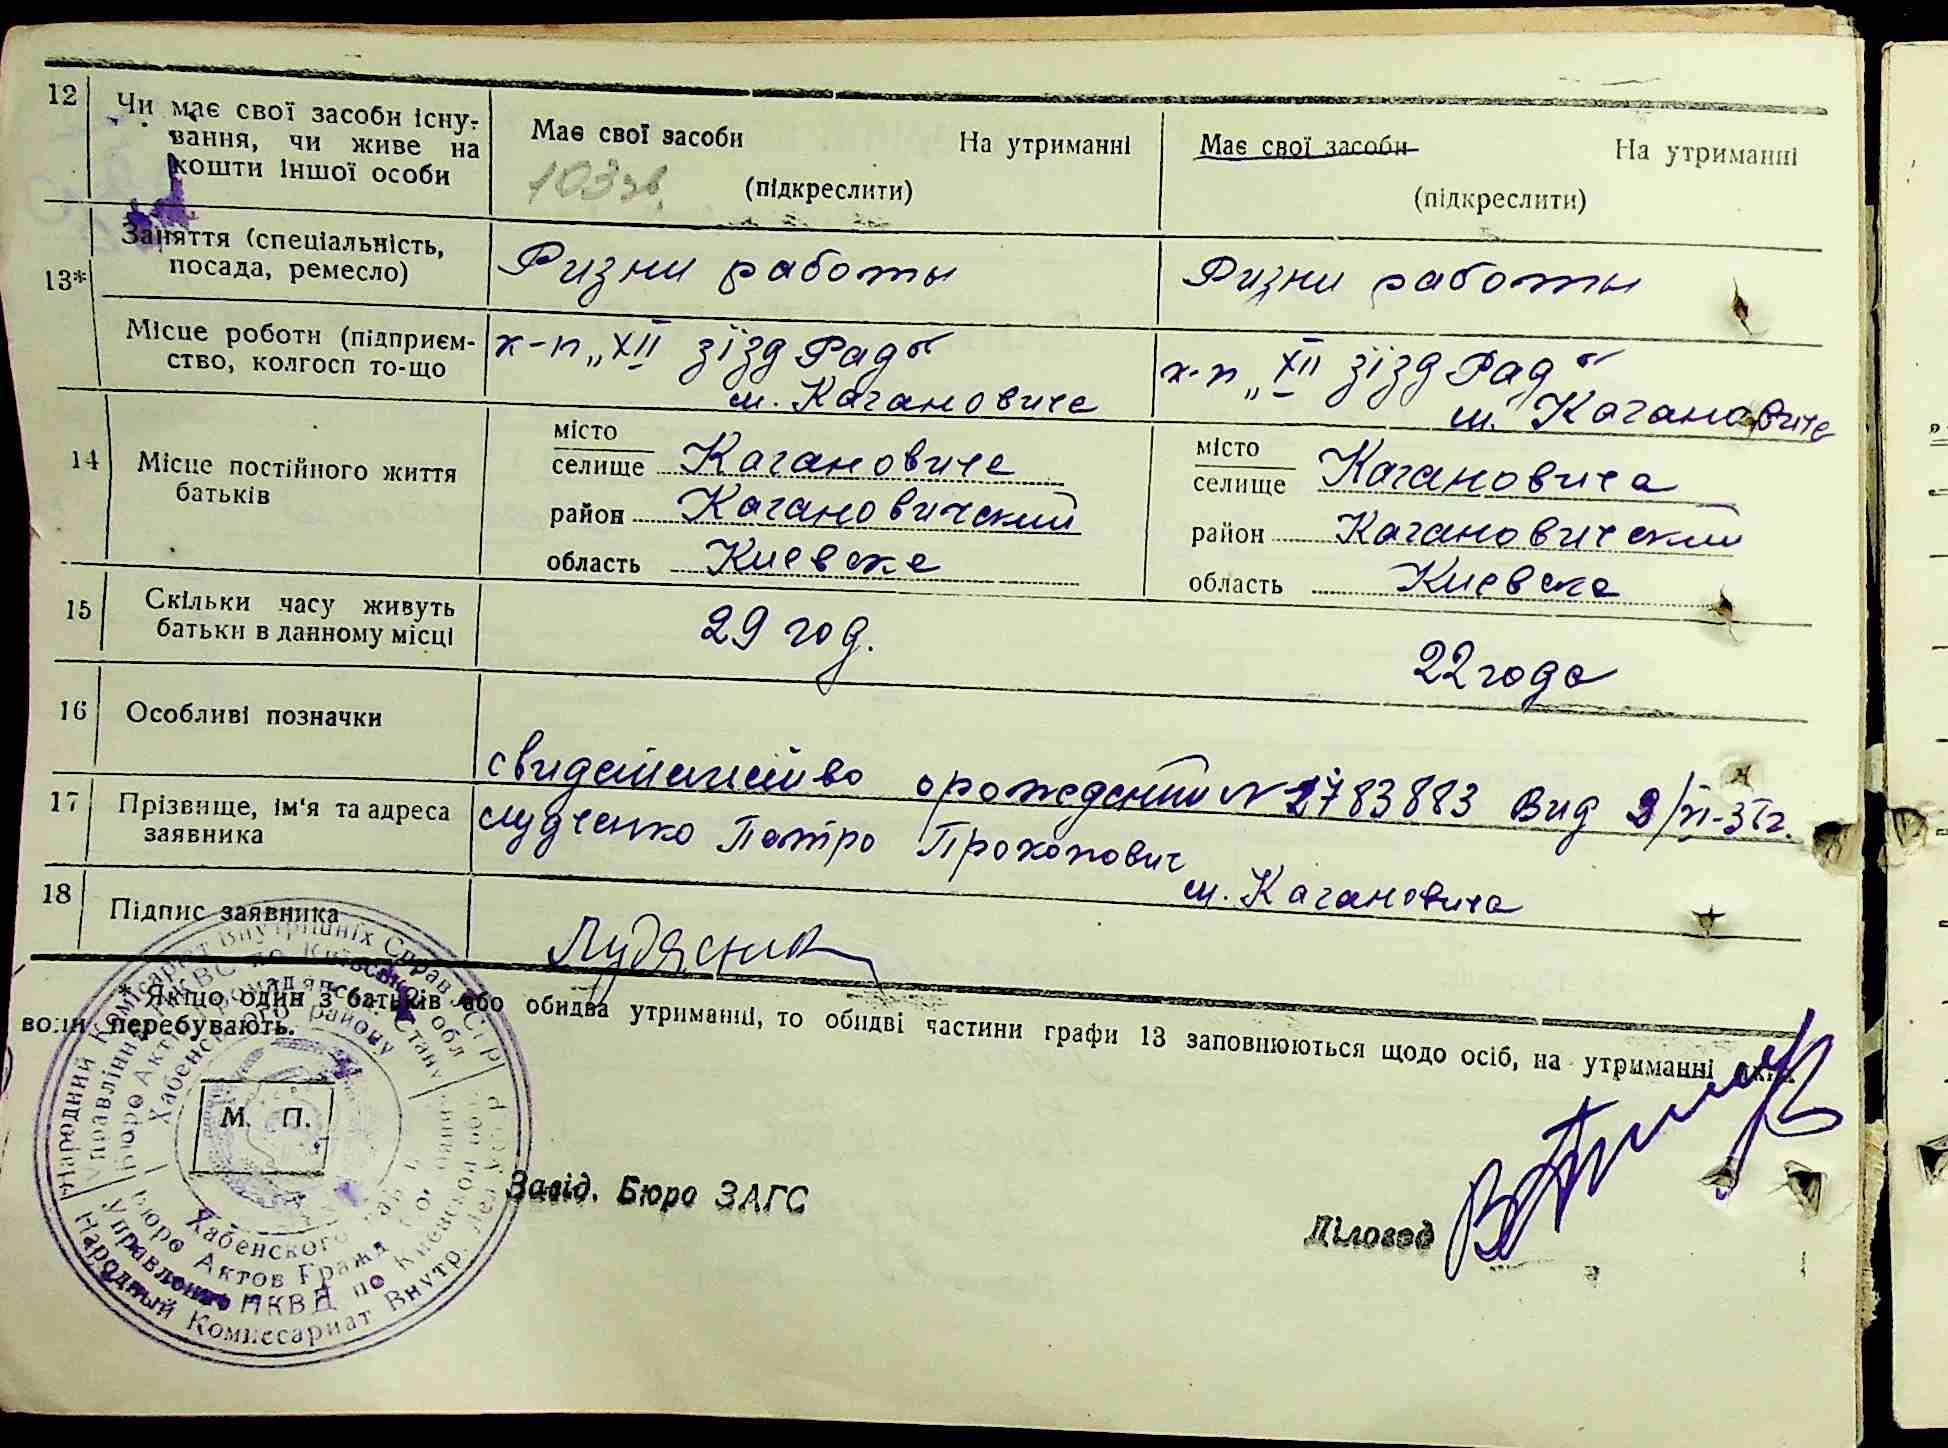 12
Чи має свої засоби існу-
вання, чи живе на
кошти іншої особи
Має свої засоби На утриманні
103 зв.
(підкреслити)
Має свої засоби На утриманні
(підкреслити)
13*
Заняття (спеціальність,
посада, ремесло)
Ризни работы
Ризни работы
Місце роботи (підприєм-
ство, колгосп то-що
к-п „XII зїзд Рад"
м. Кагановиче
к-п „XII зїзд Рад"
м. Кагановиче
14
Місце постійного життя
батьків
місто
селище Кагановиче
район Кагановичский
область Киевске
місто
селище Кагановича
район Кагановичский
область Киевска
15
Скільки часу живуть
батьки в данному місці
29 год.
22 года
16
Особливі позначки
свидетельство о рождении № 2783883 Вид 9/XI-37г.
17
Прізвище, ім'я та адреса
заявника
Петро Прокопович
м. Кагановича
18
Підпис заявника
* Якщо один з батьків або обидва утриманні, то обидві частини графи 13 заповнюються щодо осіб, на утриманні яких
вони перебувають.
М. П.
Народний Комісаріат Внутрішніх Справ
Управління НКВС по Київській обл
Бюро Актів Громадянськ. Стану
Хабенського району
Хабенского
Бюро Актов Гражд
Управление НКВД по Киевской
Народный Комиссариат Внутр.
Завід. Бюро ЗАГС
Діловод